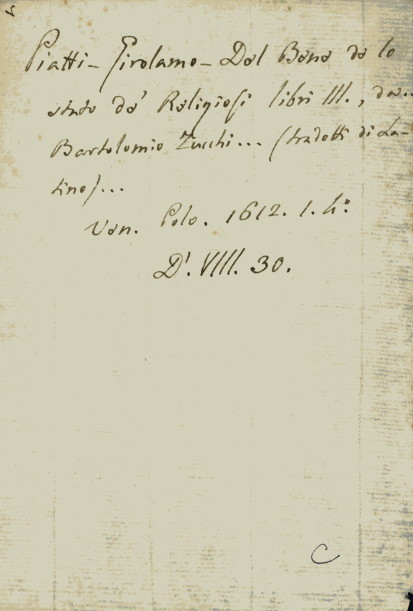 Piatti - Girolamo - Del Bene de lo
stato de' Religiosi libri III., da..
Bartolomio Zucchi... (tradotti di La-
tino)...
Ven. Polo. 1612. 1. 4.°
D'. VIII. 30.
C